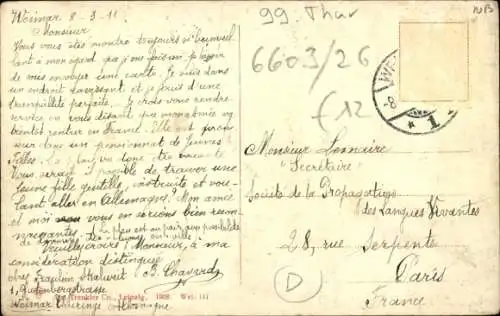 Weimar 8-3-11
Monsieur
Vous vous êtes montré toujours si bienveil
lant à mon égard que je me fais un plaisir
de vous envoyer une carte. Je suis dans
un endroit ravissant et je jouis d'une
tranquillité parfaite. Je crois vous rendre
service en vous disant que mon amie va
bientôt rentrer en France. Elle est
dans un pensionnat de Jeunes
Filles. La place va donc être vacante
Vous serait-il possible de trouver une
jeune fille gentille, instruite et vou-
lant aller en Allemagne? Mon amie
et moi vous en serions bien recon-
naissantes.
Veuillez croire, Monsieur, à ma
considération distinguée
chez Fraülein B. Chaverd
1, Gutenbergstrasse
Weimar Thuringe Allemagne
Trenkler Co., Leipzig. 1908 Wei. 111
99. Thur
6603/26
£12
WEI
8
* 1
Monsieur Lemaire
"Secrétaire"
Société de la Propagation
des Langues Vivantes
28, rue Serpente
Paris
France
D